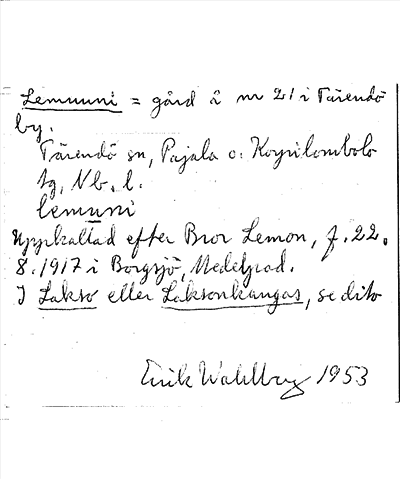 Lemuuni = gård å nr 21 i Tärendö
by.
Tärendö sn, Pajala o. Korpilombolo
tg, Nb. l.
lemuni
Uppkallad efter Bror Lemon, f. 22.
8. 1917 i Borgsjö, Medelpad.
I Lakso eller Laksonkangas, se dito
Erik Wahlberg 1953